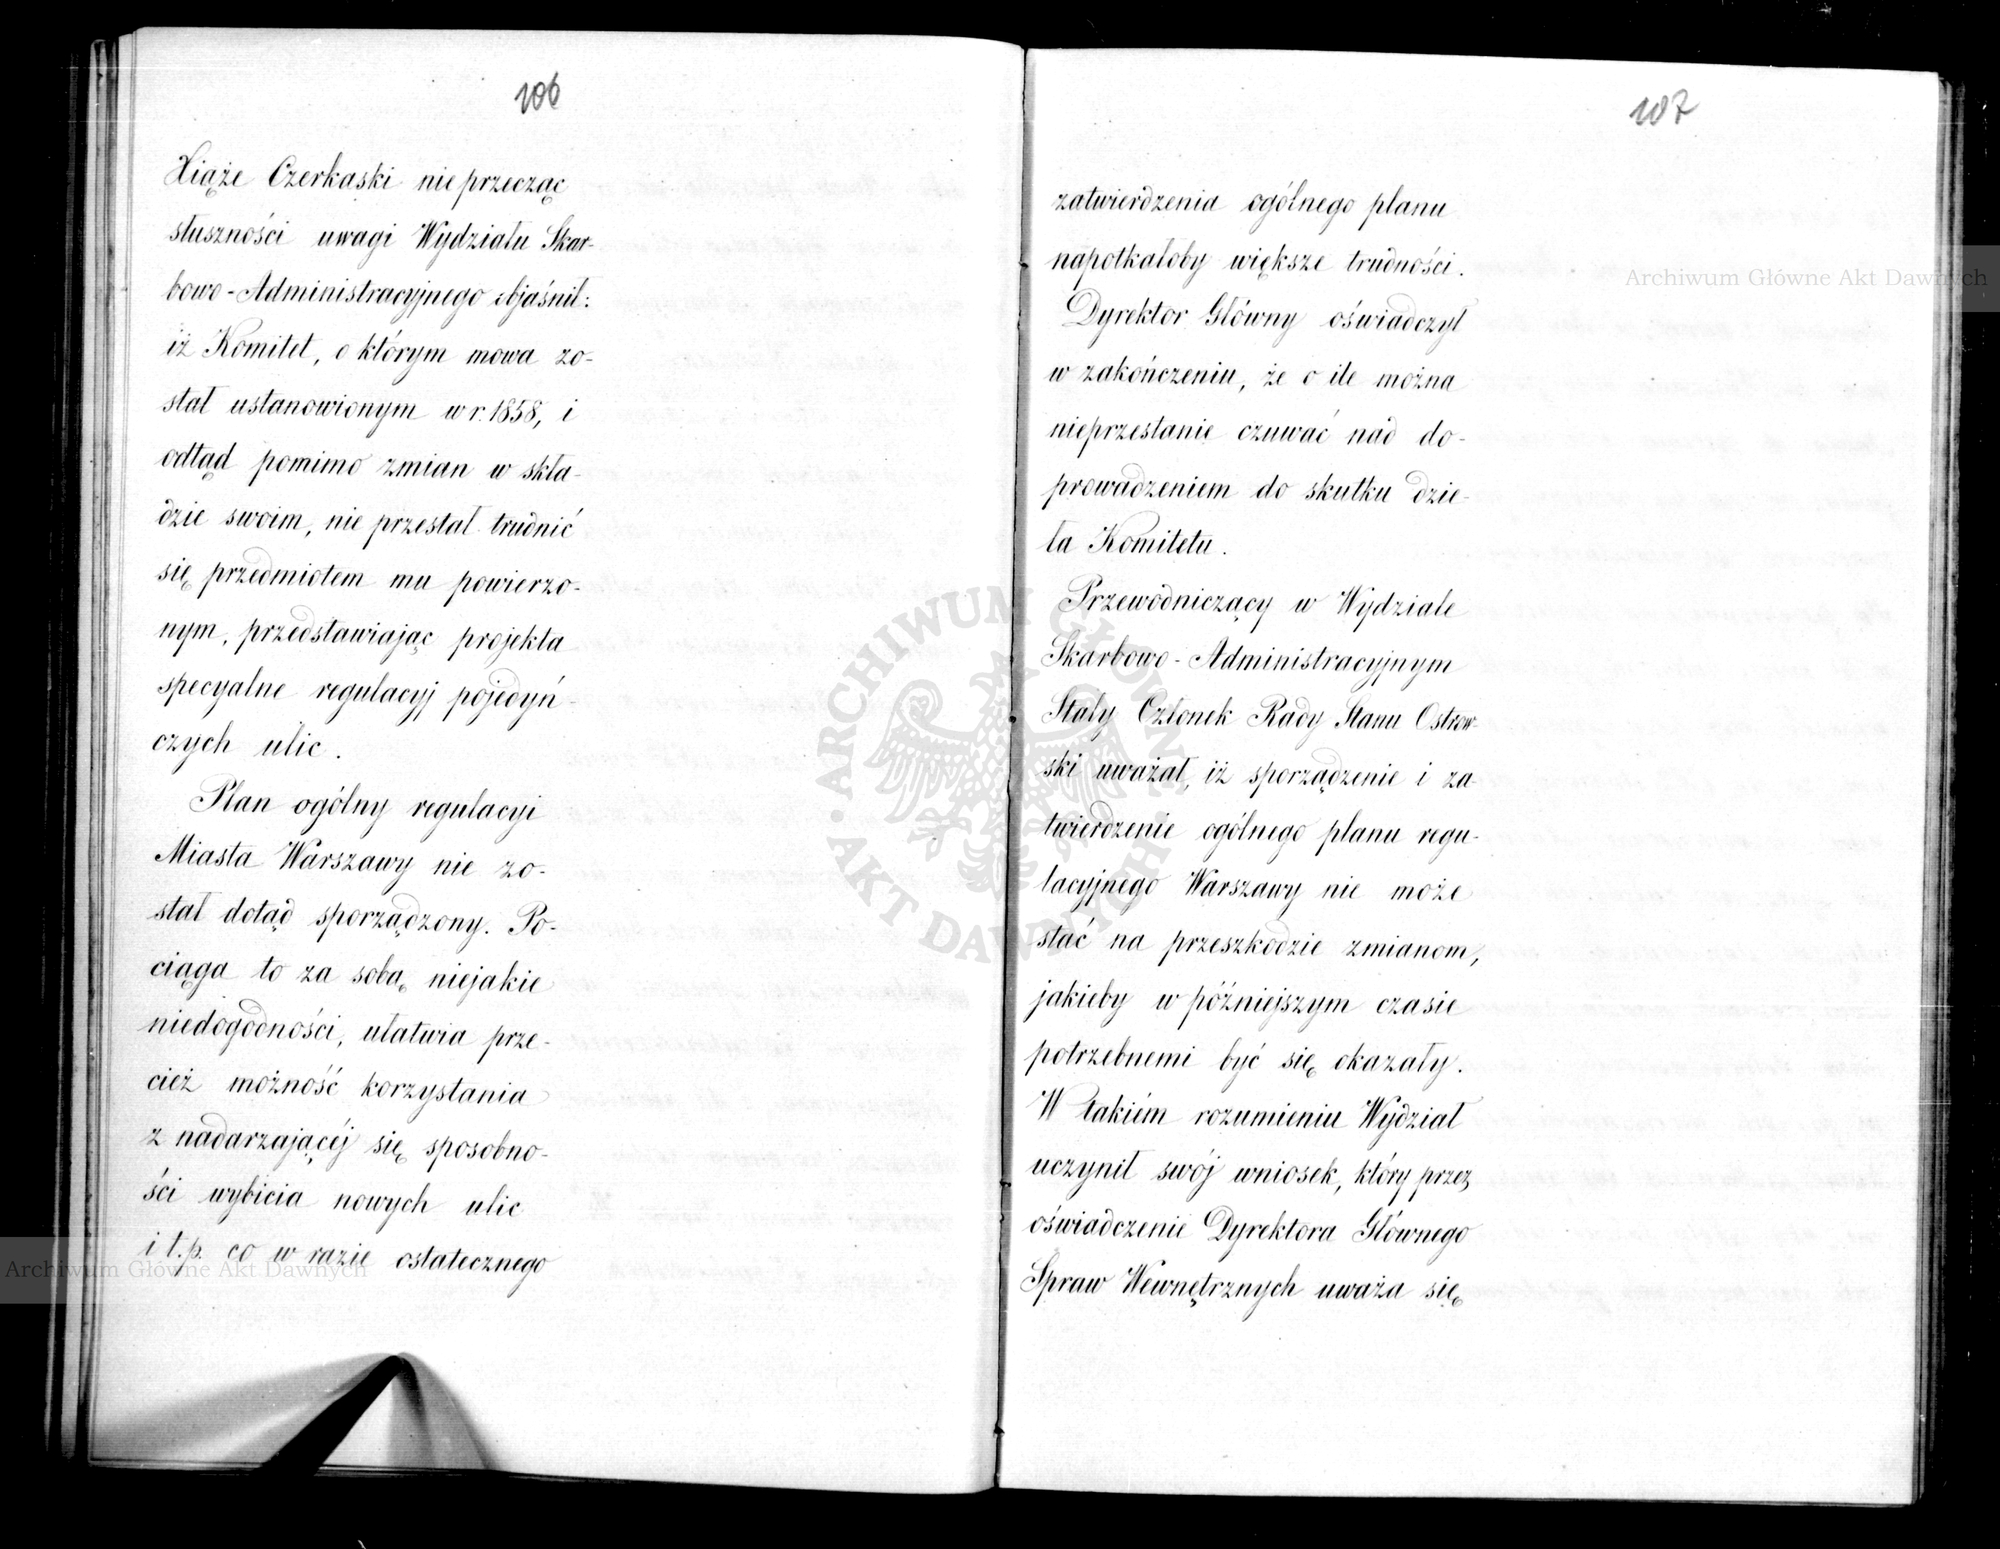 106
Xiąże Czerkaski nie przecząc
słuszności uwagi Wydziału Skar-
bowo-Administracyjnego objaśnił:
iż Komitet, o którym mowa zo-
stał ustanowionym w r. 1858, i
odtąd pomimo zmian w skła-
dzie swoim, nie przestał trudnić
się przedmiotem mu powierzo-
nym, przedstawiając projekta
specyalne regulacyj pojedyń-
czych ulic.
Plan ogólny regulacyi
Miasta Warszawy nie zo-
stał dotąd sporządzony. Po-
ciąga to za sobą niejakie
niedogodności, ułatwia prze-
cież możność korzystania
z nadarzającéj się sposobno-
ści wybicia nowych ulic
i t.p. co w razie ostatecznego
107
zatwierdzenia ogólnego planu
napotkałoby większe trudności.
Dyrektor Główny oświadczył
w zakończeniu, że o ile można
nieprzestanie czuwać nad do-
prowadzeniem do skutku dzie-
ła Komitetu.
Przewodniczący w Wydziale
Skarbowo-Administracyjnym
Stały Członek Rady Stanu Ostrow-
ski uważał, iż sporządzenie i za-
twierdzenie ogólnego planu regu-
lacyjnego Warszawy nie może
stać na przeszkodzie zmianom,
jakieby w późniejszym czasie
potrzebnemi być się okazały.
W takiém rozumieniu Wydział
uczynił swój wniosek, który przez
oświadczenie Dyrektora Głównego
Spraw Wewnętrznych uważa się
Archiwum Główne Akt Dawnych
Archiwum Główne Akt Dawnych
ARCHIWUM GŁÓWNE AKT DAWNYCH